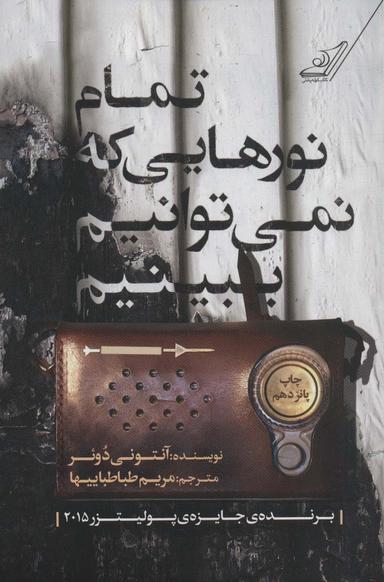 تمام
نورهایی که
نمی‌توانیم
ببینیم
چاپ
پانزدهم
نویسنده: آنتونی دُوئر
مترجم: مریم طباطباییها
برنده‌ی جایزه‌ی پولیتزر ۲۰۱۵